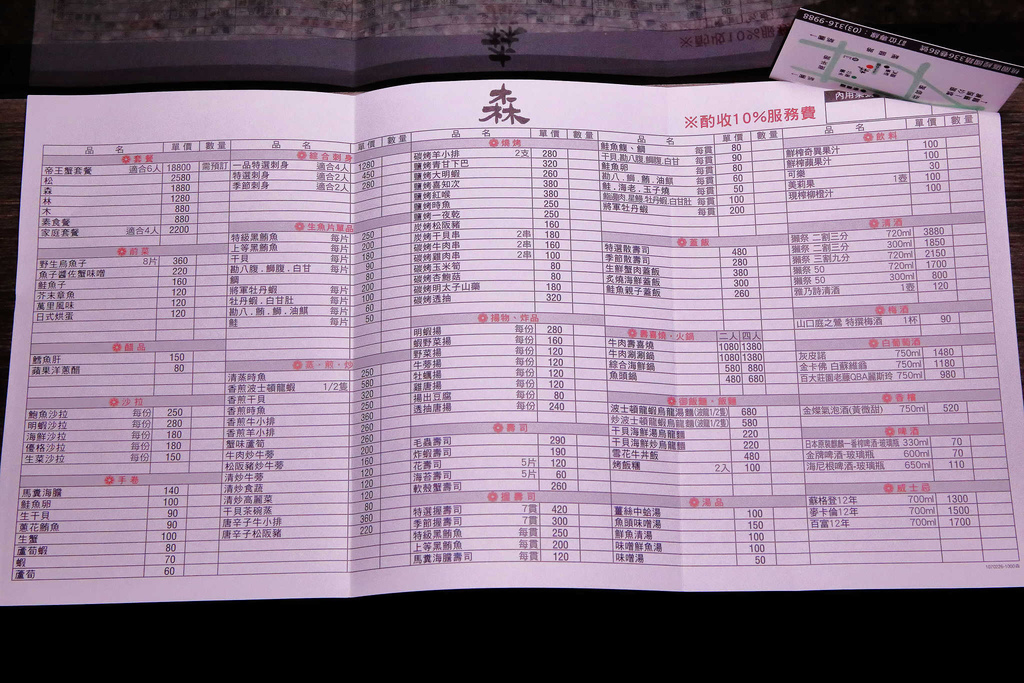 森
※酌收10%服務費
品名 單價 數量
套餐
帝王蟹套餐 適合6人 18800 需預訂
松 2580
森 1880
林 1280
木 880
素食餐 880
家庭套餐 適合4人 2200
前菜
野生烏魚子 8片 360
魚子醬佐蟹味噌 220
鮭魚子 160
芥末章魚 120
萬里風味 120
日式烘蛋 120
醋品
鱈魚肝 150
蘋果洋蔥醋 80
沙拉
鮑魚沙拉 每份 250
明蝦沙拉 每份 280
海鮮沙拉 每份 180
優格沙拉 每份 180
生菜沙拉 每份 150
手卷
馬糞海膽 140
鮭魚卵 100
生干貝 90
蔥花鮪魚 90
生蟹 100
蘆筍蝦 80
蝦 70
蘆筍 60
品名 單價 數量
綜合刺身
一品特選刺身 適合4人 1280
特選刺身 適合2人 450
季節刺身 適合2人 280
生魚片單品
特級黑鮪魚 每片 250
上等黑鮪魚 每片 200
干貝 每片
勘八腹．鰤腹．白甘 每片
鯛 每片
將軍牡丹蝦 每片 200
牡丹蝦．白甘肚 每片 100
勘八．鮪．鰤．油魽 每片 60
鮭 每片 50
蒸．煎．炒
清蒸時魚 250
香煎波士頓龍蝦 1/2隻 580
香煎干貝 320
香煎時魚 250
香煎牛小排 360
香煎羊小排 260
蟹味蘆筍 260
牛肉炒牛蒡 160
松阪豬炒牛蒡 160
清炒牛蒡 120
清炒食蔬 120
清炒高麗菜 120
干貝茶碗蒸 80
唐辛子牛小排 360
唐辛子松阪豬 220
品名 單價 數量
燒烤
碳烤羊小排 2支 280
鹽烤青甘下巴 320
碳烤大明蝦 260
鹽烤喜知次 380
鹽烤紅喉 380
鹽烤時魚 250
鹽烤一夜乾 250
炭烤松阪豬 160
碳烤干貝串 2串 180
碳烤牛肉串 2串 180
碳烤雞肉串 2串 100
碳烤玉米筍 80
碳烤杏鮑菇 80
碳烤明太子山藥 180
碳烤透抽 320
揚物．炸品
明蝦揚 每份 280
蝦野菜揚 每份 160
野菜揚 每份 120
牛蒡揚 每份 120
牡蠣揚 每份 120
雞唐揚 每份 120
揚出豆腐 每份 80
透抽唐揚 每份 240
壽司
毛蟲壽司 290
炸蝦壽司 190
花壽司 5片 120
海苔壽司 5片 60
軟殼蟹壽司 260
握壽司
特選握壽司 7貫 420
季節握壽司 7貫 300
特級黑鮪魚 每貫 250
上等黑鮪魚 每貫 200
馬糞海膽壽司 每貫 120
品名 單價 數量
鮭魚龍、鯛 每貫 80
干貝.勘八腹.鰤腹.白甘 每貫 90
鮭魚卵 每貫 80
勘八．鰤．鮪．油魽 每貫 60
鮭．海老．玉子燒 每貫 50
星鰻.牡丹蝦.白甘肚 每貫 100
將軍牡丹蝦 每貫 200
蓋飯
特選散壽司 480
季節散壽司 280
生鮮蟹肉蓋飯 380
炙燒海鮮蓋飯 300
鮭魚親子蓋飯 260
壽喜燒．火鍋 二人 四人
牛肉壽喜燒 1080 1380
牛肉涮涮鍋 1080 1380
綜合海鮮鍋 580 880
魚頭鍋 480 680
御飯麵．細麵
波士頓龍蝦烏龍湯麵(波龍1/2隻) 680
炒波士頓龍蝦烏龍麵(波龍1/2隻) 580
干貝海鮮湯烏龍麵 220
干貝海鮮炒烏龍麵 220
雪花牛丼飯 480
烤飯糰 2入 100
湯品
薑絲中蛤湯 100
魚頭味噌湯 150
鮮魚清湯 100
味噌鮮魚湯 100
味噌湯 50
內用
品名 單價 數量
飲料
鮮榨奇異果汁 100
鮮榨蘋果汁 100
可樂 30
美莉果 1壺 100
現榨柳橙汁 100
清酒
獺祭 二割三分 720ml 3880
獺祭 二割三分 300ml 1850
獺祭 三割九分 720ml 2150
獺祭 50 720ml 1700
獺祭 50 300ml 800
雅乃詩清酒 1壺 120
梅酒
山口庭之鶯 特撰梅酒 1杯 90
白葡萄酒
灰皮諾 750ml 1480
金卡佛 白蘇維翁 750ml 1180
百大莊園老藤QBA麗斯玲 750ml 980
香檳
金燦氣泡酒(黃微甜) 750ml 520
啤酒
日本原裝麒麟一番榨啤酒-玻璃瓶 330ml 70
金牌啤酒-玻璃瓶 600ml 70
海尼根啤酒-玻璃瓶 650ml 110
威士忌
蘇格登12年 700ml 1300
麥卡倫12年 700ml 1500
百富12年 700ml 1700
訂位專線：(03)316-9988